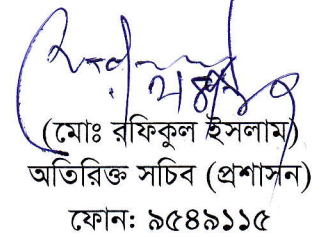 (মোঃ রফিকুল ইসলাম)
অতিরিক্ত সচিব (প্রশাসন)
ফোন: ৯৫৪৯১১৫